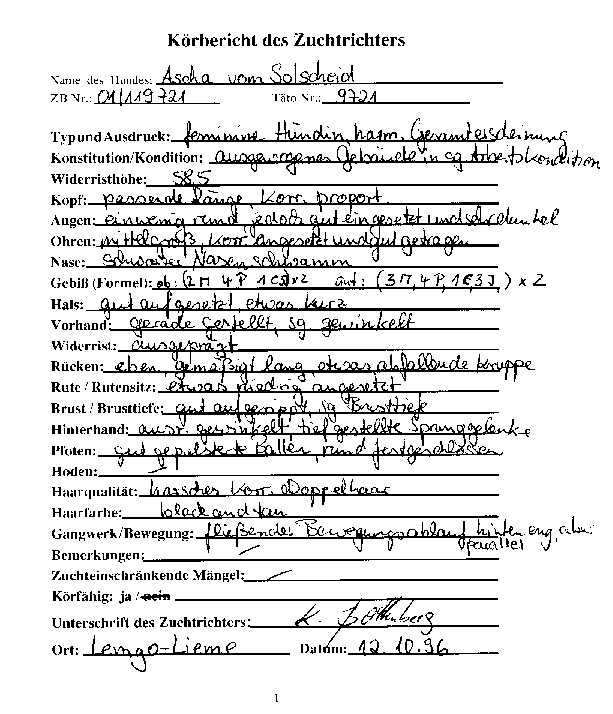 Körbericht des Zuchtrichters
Name des Hundes: Ascha vom Solscheid
ZB Nr.: 01/119721 Täto Nr.: 9721
Typ und Ausdruck: feminine Hündin, harm. Gesamterscheinung
Konstitution/Kondition: ausgewogenes Gebäude in sg Arbeitskondition
Widerristhöhe: 58,5
Kopf: passende Länge, korr. proport.
Augen: ein wenig rund, jedoch gut eingesetzt und sehr dunkel
Ohren: mittelgroß, korr. angesetzt und gut getragen
Nase: schwarzer Nasenschwamm
Gebiß (Formel): ob: (2M 4P 1C3J)x2 unt: (3M, 4P, 1C, 3J) x 2
Hals: gut aufgesetzt, etwas kurz
Vorhand: gerade gestellt, sg. gewinkelt
Widerrist: ausgeprägt
Rücken: eben, gemäßigt lang, etwas abfallende Kruppe
Rute / Rutensitz: etwas niedrig angesetzt
Brust / Brusttiefe: gut aufgerippt, sg Brusttiefe
Hinterhand: ausr. gewinkelt, tief gestellte Sprunggelenke
Pfoten: gut gepolsterte Ballen, rund festgeschlossen
Hoden:
Haarqualität: harsches korr. Doppelhaar
Haarfarbe: black and tan
Gangwerk/Bewegung: fließender Bewegungsablauf, hinten eng, aber
parallel
Bemerkungen:
Zuchteinschränkende Mängel:
Körfähig: ja / nein
Unterschrift des Zuchtrichters: K.
Ort: Lemgo-Lieme Datum: 12.10.96
1